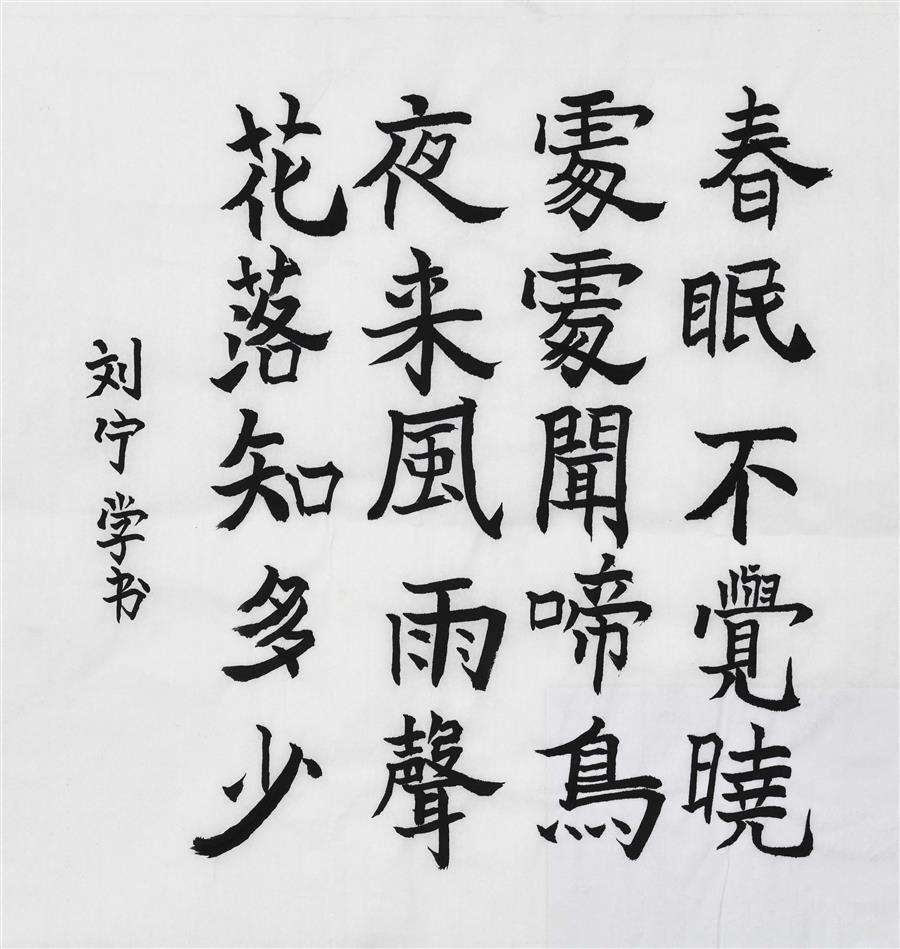 春眠不覺曉
處處聞啼鳥
夜来風雨聲
花落知多少
刘宁学书